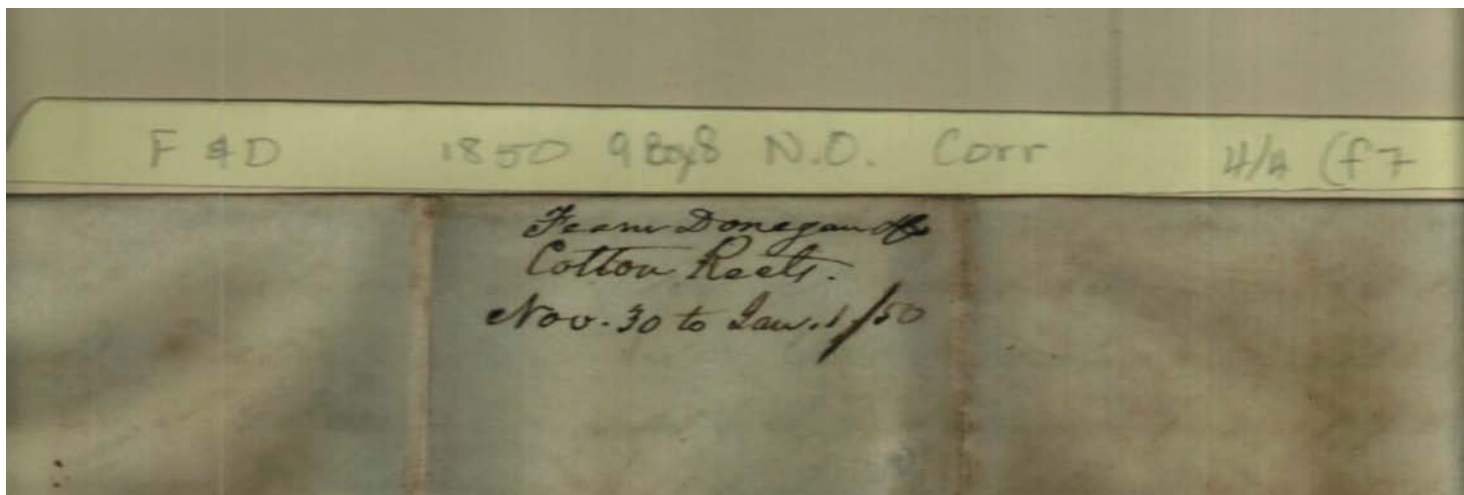 F & D 1850 9 Box 8 N.O. Corr 4/4 (f 7
Fearn Donegan &
Cotton Rects.
Nov. 30 to Jan. 1/50